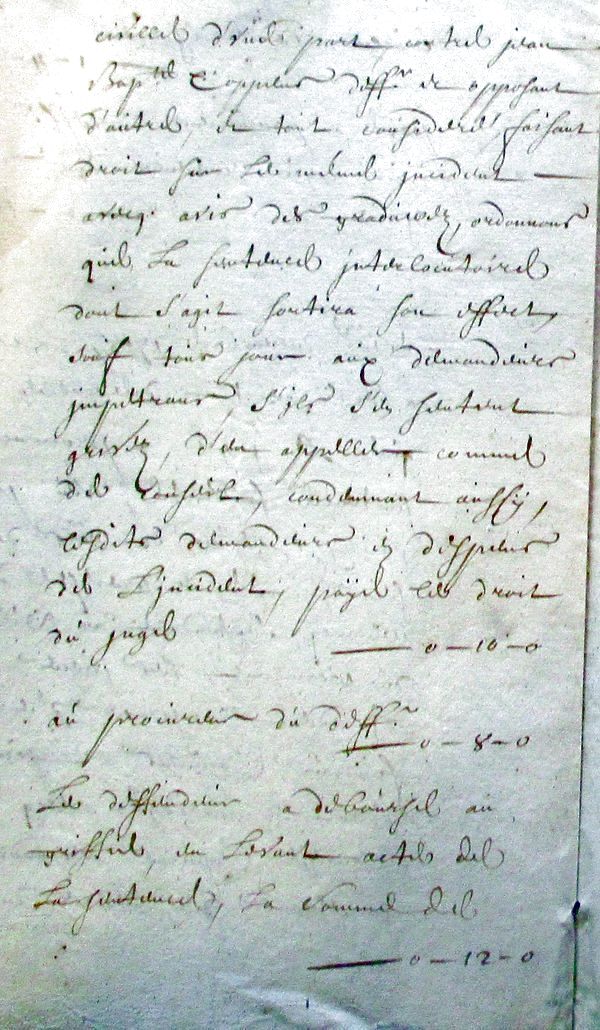 civilles d'une part, contre jean
Bap.te Coppens deff.r et opposant
d'autre, et tout consideré, faisant
droit sur le meme jncident —
avecq avis des graduwez, ordonnons
que la sentence jnterlocutoire
dont s'agit sortira son effect,
sauf tous jour aux demandeurs
jmpetrans, s'jls s'en sentent
grevez, d'en appeller comme
de conseil, condemnant aussÿ,
lesdits demandeurs es despens
de l'jncident, payé le droit
du juge
— 0 — 10 — 0
au procureur du deff.r
— 0 — 8 — 0
Le deffendeur a deboursé au
greffie, en levant acte de
la sentence, la somme de
— 0 — 12 — 0